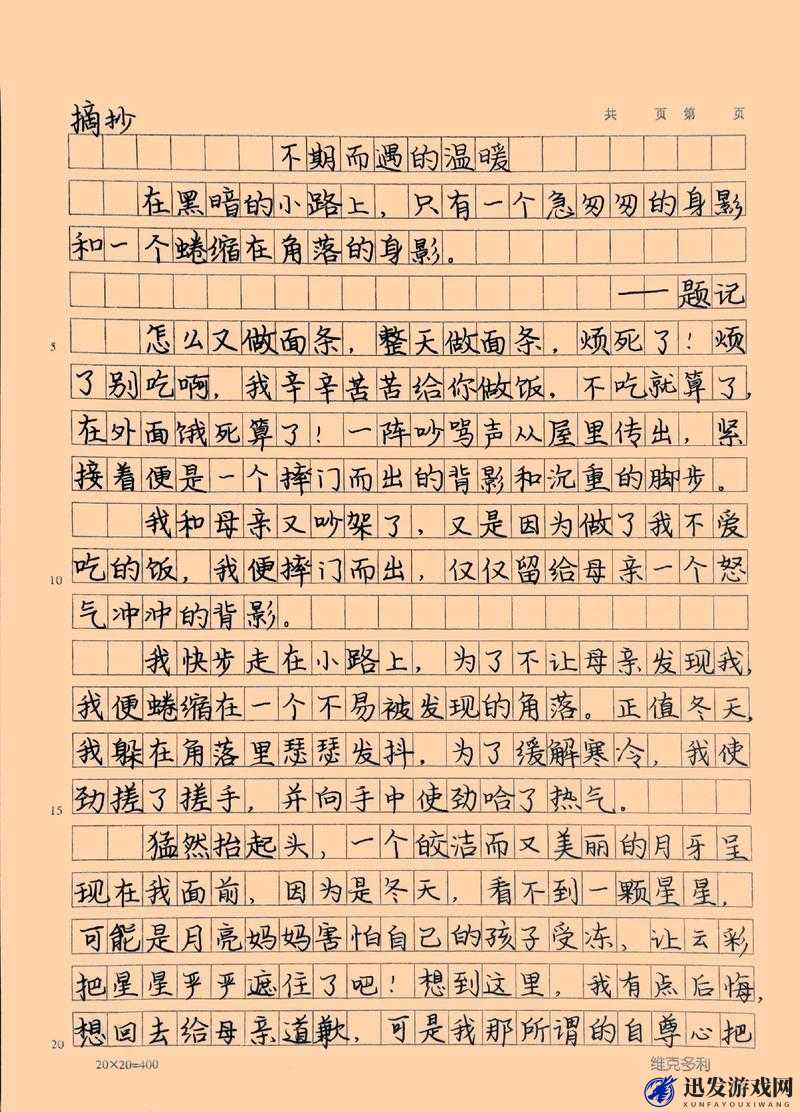 摘抄
共 页 第 页
不期而遇的温暖
在黑暗的小路上，只有一个急匆匆的身影
和一个蜷缩在角落的身影。
——题记
5 怎么又做面条，整天做面条，烦死了！烦
了别吃啊，我辛辛苦苦给你做饭，不吃就算了，
在外面饿死算了！一阵吵骂声从屋里传出，紧
接着便是一个摔门而出的背影和沉重的脚步。
我和母亲又吵架了，又是因为做了我不爱
10 吃的饭，我便摔门而出，仅仅留给母亲一个怒
气冲冲的背影。
我快步走在小路上，为了不让母亲发现我，
我便蜷缩在一个不易被发现的角落。正值冬天，
我躲在角落里瑟瑟发抖，为了缓解寒冷，我使
15 劲搓了搓手，并向手中使劲哈了热气。
猛然抬起头，一个皎洁而又美丽的月牙呈
现在我面前，因为是冬天，看不到一颗星星，
可能是月亮妈妈害怕自己的孩子受冻，让云彩
把星星乎乎遮住了吧！想到这里，我有点后悔，
20 想回去给母亲道歉，可是我那所谓的自尊心把
20×20=400
维克多利
迅发游戏网
XUNFAYOUXIWANG